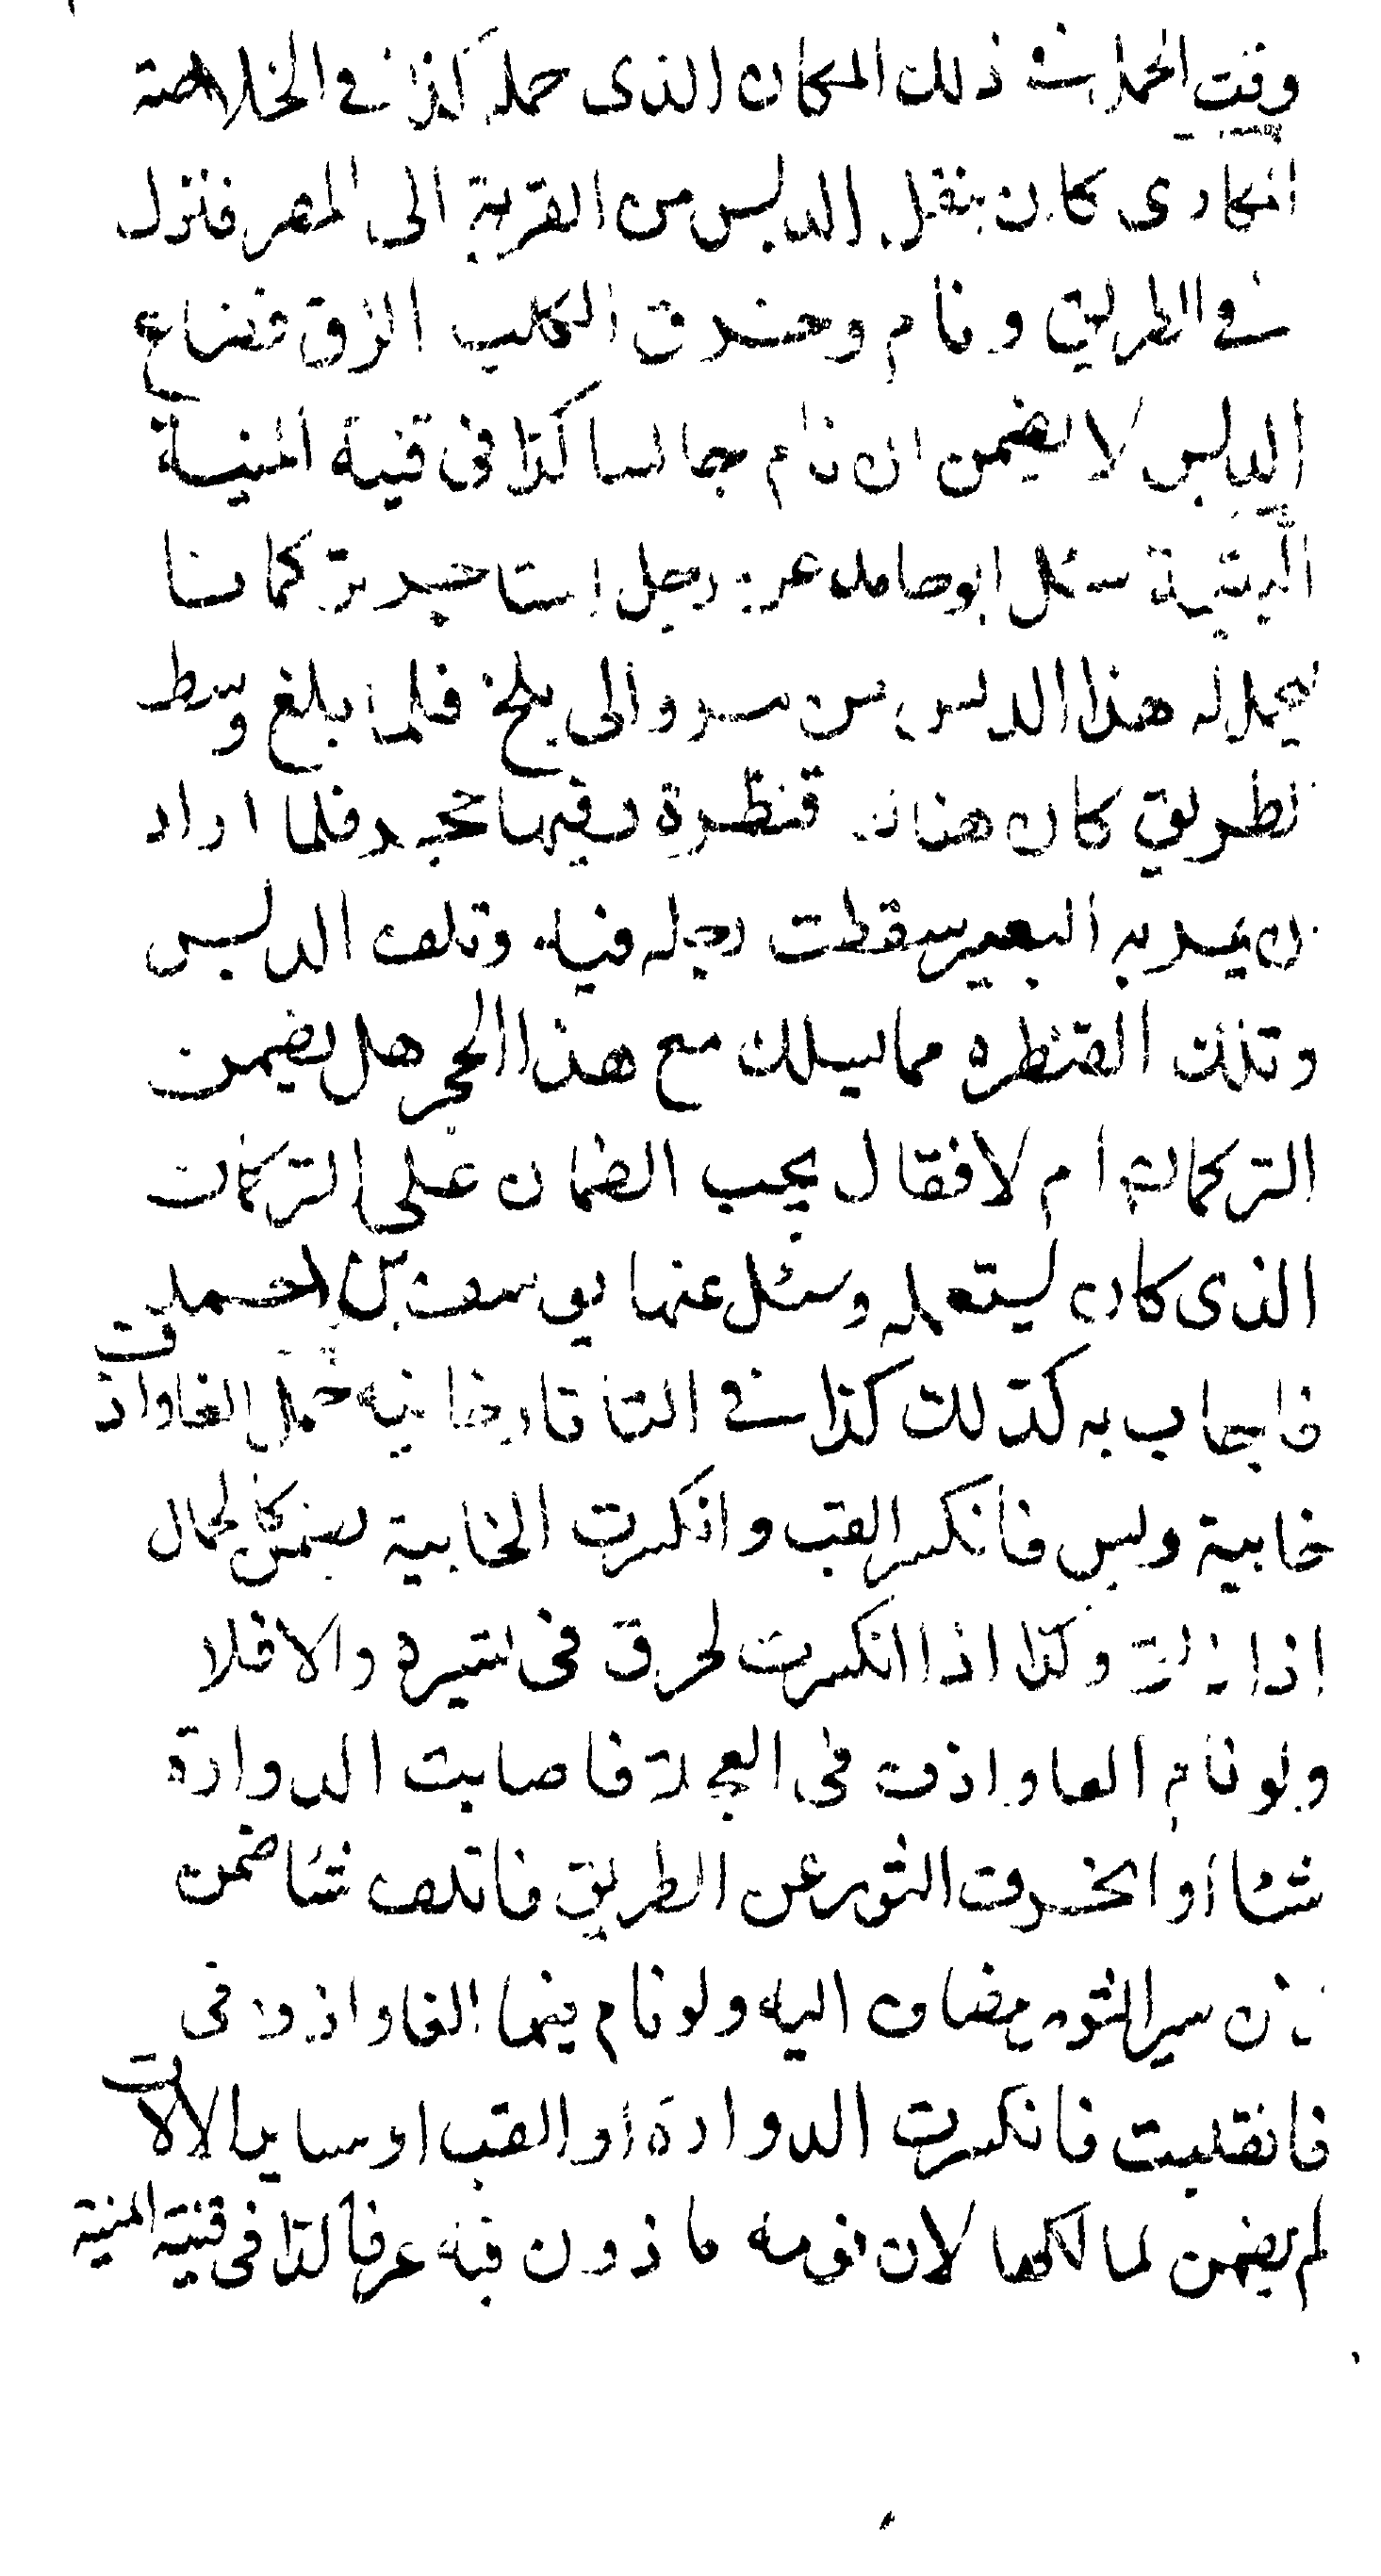 وقت الحمل في ذلك المكان الذى حمله كذا في الخلاصة
المكارى كان ينقل الدبس من القرية الى المصر فنزل
في الطريق ونام وخرق الكلب الزق فضاع
الدبس لا يضمن ان نام جالسا كذا فى قنية المنية
اليتيمة سئل ابو حامد عن رجل استاجر تركمانيا
ليحمل له هذا الدبس من مرو الى بلخ فلما بلغ وسط
الطريق كان هناك قنطرة وفيها حجر فلما اراد
ان يمر به البعير سقطت رجله فيه وتلف الدبس
وتلك القنطره مما يسلك مع هذا الحجر هل يضمن
التركمانى ام لا فقال يجب الضمان على التركمان
الذى كان يستعمله وسئل عنها يوسف بن احمد
فاجاب به كذلك كذا في التاتارخانيه حمل الغاواذق
خابية دبس فانكسر القب وانكسرت الخابية يضمن كالحمال
اذا زلق وكذا اذا انكسرت لخرق فى سيره والا فلا
ولو نام الغاواذق فى العجلة فاصابت الدوارة
شئا او انحرف الثور عن الطريق فاتلف شئا ضمن
لان سير الثور مضاف اليه ولو نام فيها الغاواذق
فانقلبت فانكسرت الدوارة او القب او ساير الالات
لم يضمن لمالكها لان نومه ماذون فيه عرفا كذا فى قنية المنية